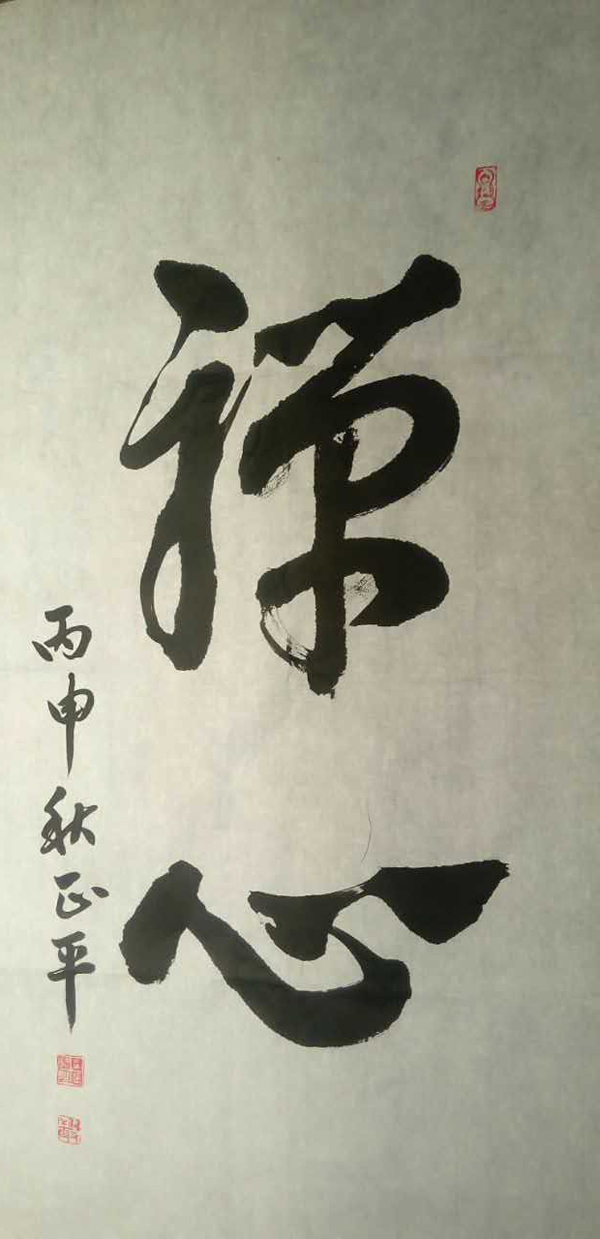 禅心
丙申秋正平